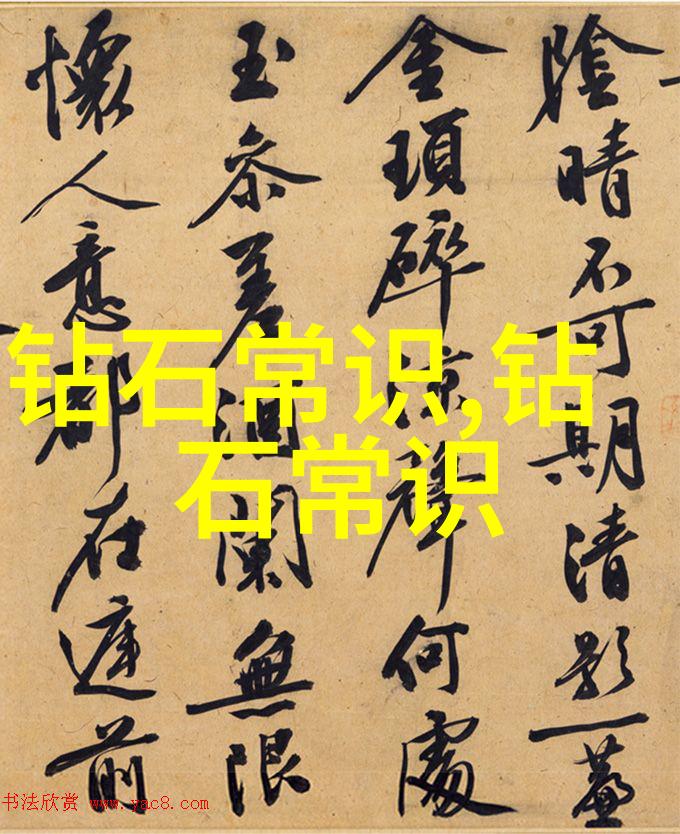 陰晴不可期清影一簾
金瑣碎涼聲何處
玉參差酒闌無限
懷人意都在庭前
钻石常识,钻
石常识
书法欣赏 www.yac8.com